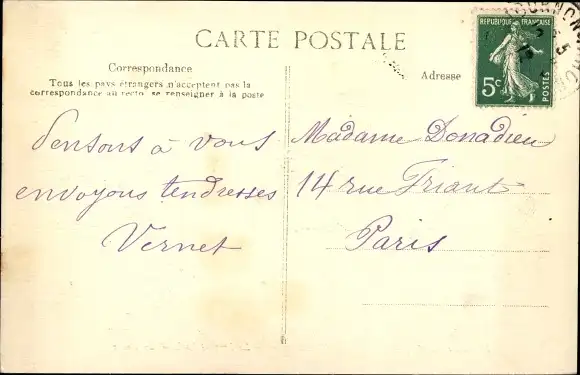 CARTE POSTALE
Correspondance
Tous les pays étrangers n'acceptent pas la
correspondance au recto, se renseigner à la poste
Pensons à vous
envoyons tendresses
Vernet
Adresse
REPUBLIQUE FRANÇAISE
5c
POSTES
Madame Donadieu
14 rue Friant
Paris